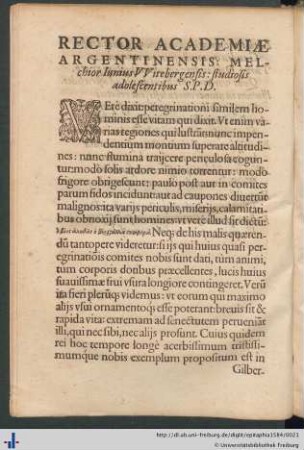 RECTOR ACADEMIÆ
ARGENTINENSIS MEL-
chior Iunius VVitebergensis: studiosis
adolescentibus S. P. D.
VErè dixit: peregrinationi similem ho-
minis esse vitam qui dixit. Vt enim va-
rias regiones qui lustrãt: nunc impen-
dentium montium superare altitudi-
nes: nunc flumina traijcere periculosa cogun-
tur: modò solis ardore nimio torrentur: modò
frigore obrigescunt: paulò pòst aut in comites
parum fidos incidunt: aut ad caupones diuertũt
malignos: ita varijs periculis, miserijs, calamitati-
bus obnoxij sunt homines: vt verè illud sit dictũ:
Neq; de his malis quæren-
dũ tantopere videretur: si ijs qui huius quasi pe-
regrinationis comites nobis sunt dati, tùm animi,
tum corporis dotibus præcellentes, lucis huius
suauissimæ frui vsura longiore contingeret. Verũ
ita fieri plerũq; videmus: vt eorum qui maximo
alijs vsui ornamentoq; esse poterant: breuis sit &
rapida vita: extremam ad senectutem perueniãt
illi, qui nec sibi, nec alijs prosunt. Cuius quidem
rei hoc tempore longè acerbissimum tristissi-
mumque nobis exemplum propositum est in
Gilber-
http://dl.ub.uni-freiburg.de/diglit/epitaphia1584/0023
© Universitätsbibliothek Freiburg